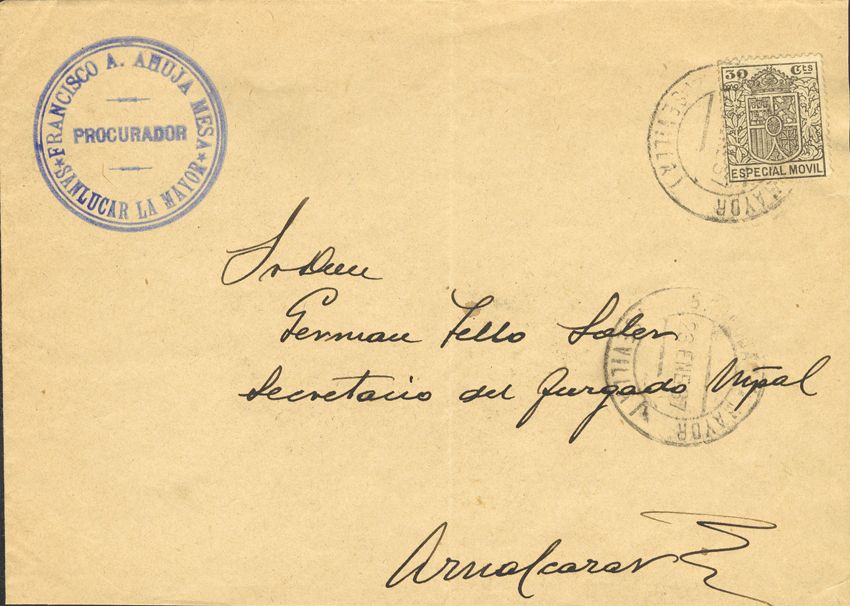 FRANCISCO A. AHUJA MESA
PROCURADOR
*SANLUCAR LA MAYOR*
30 Cts
ESPECIAL MOVIL
MAYOR (SEVILLA)
Sr Don
German Tello Soler
Secretario del Juzgado Mpal
28 ENE 37
MAYOR
Aznalcazar